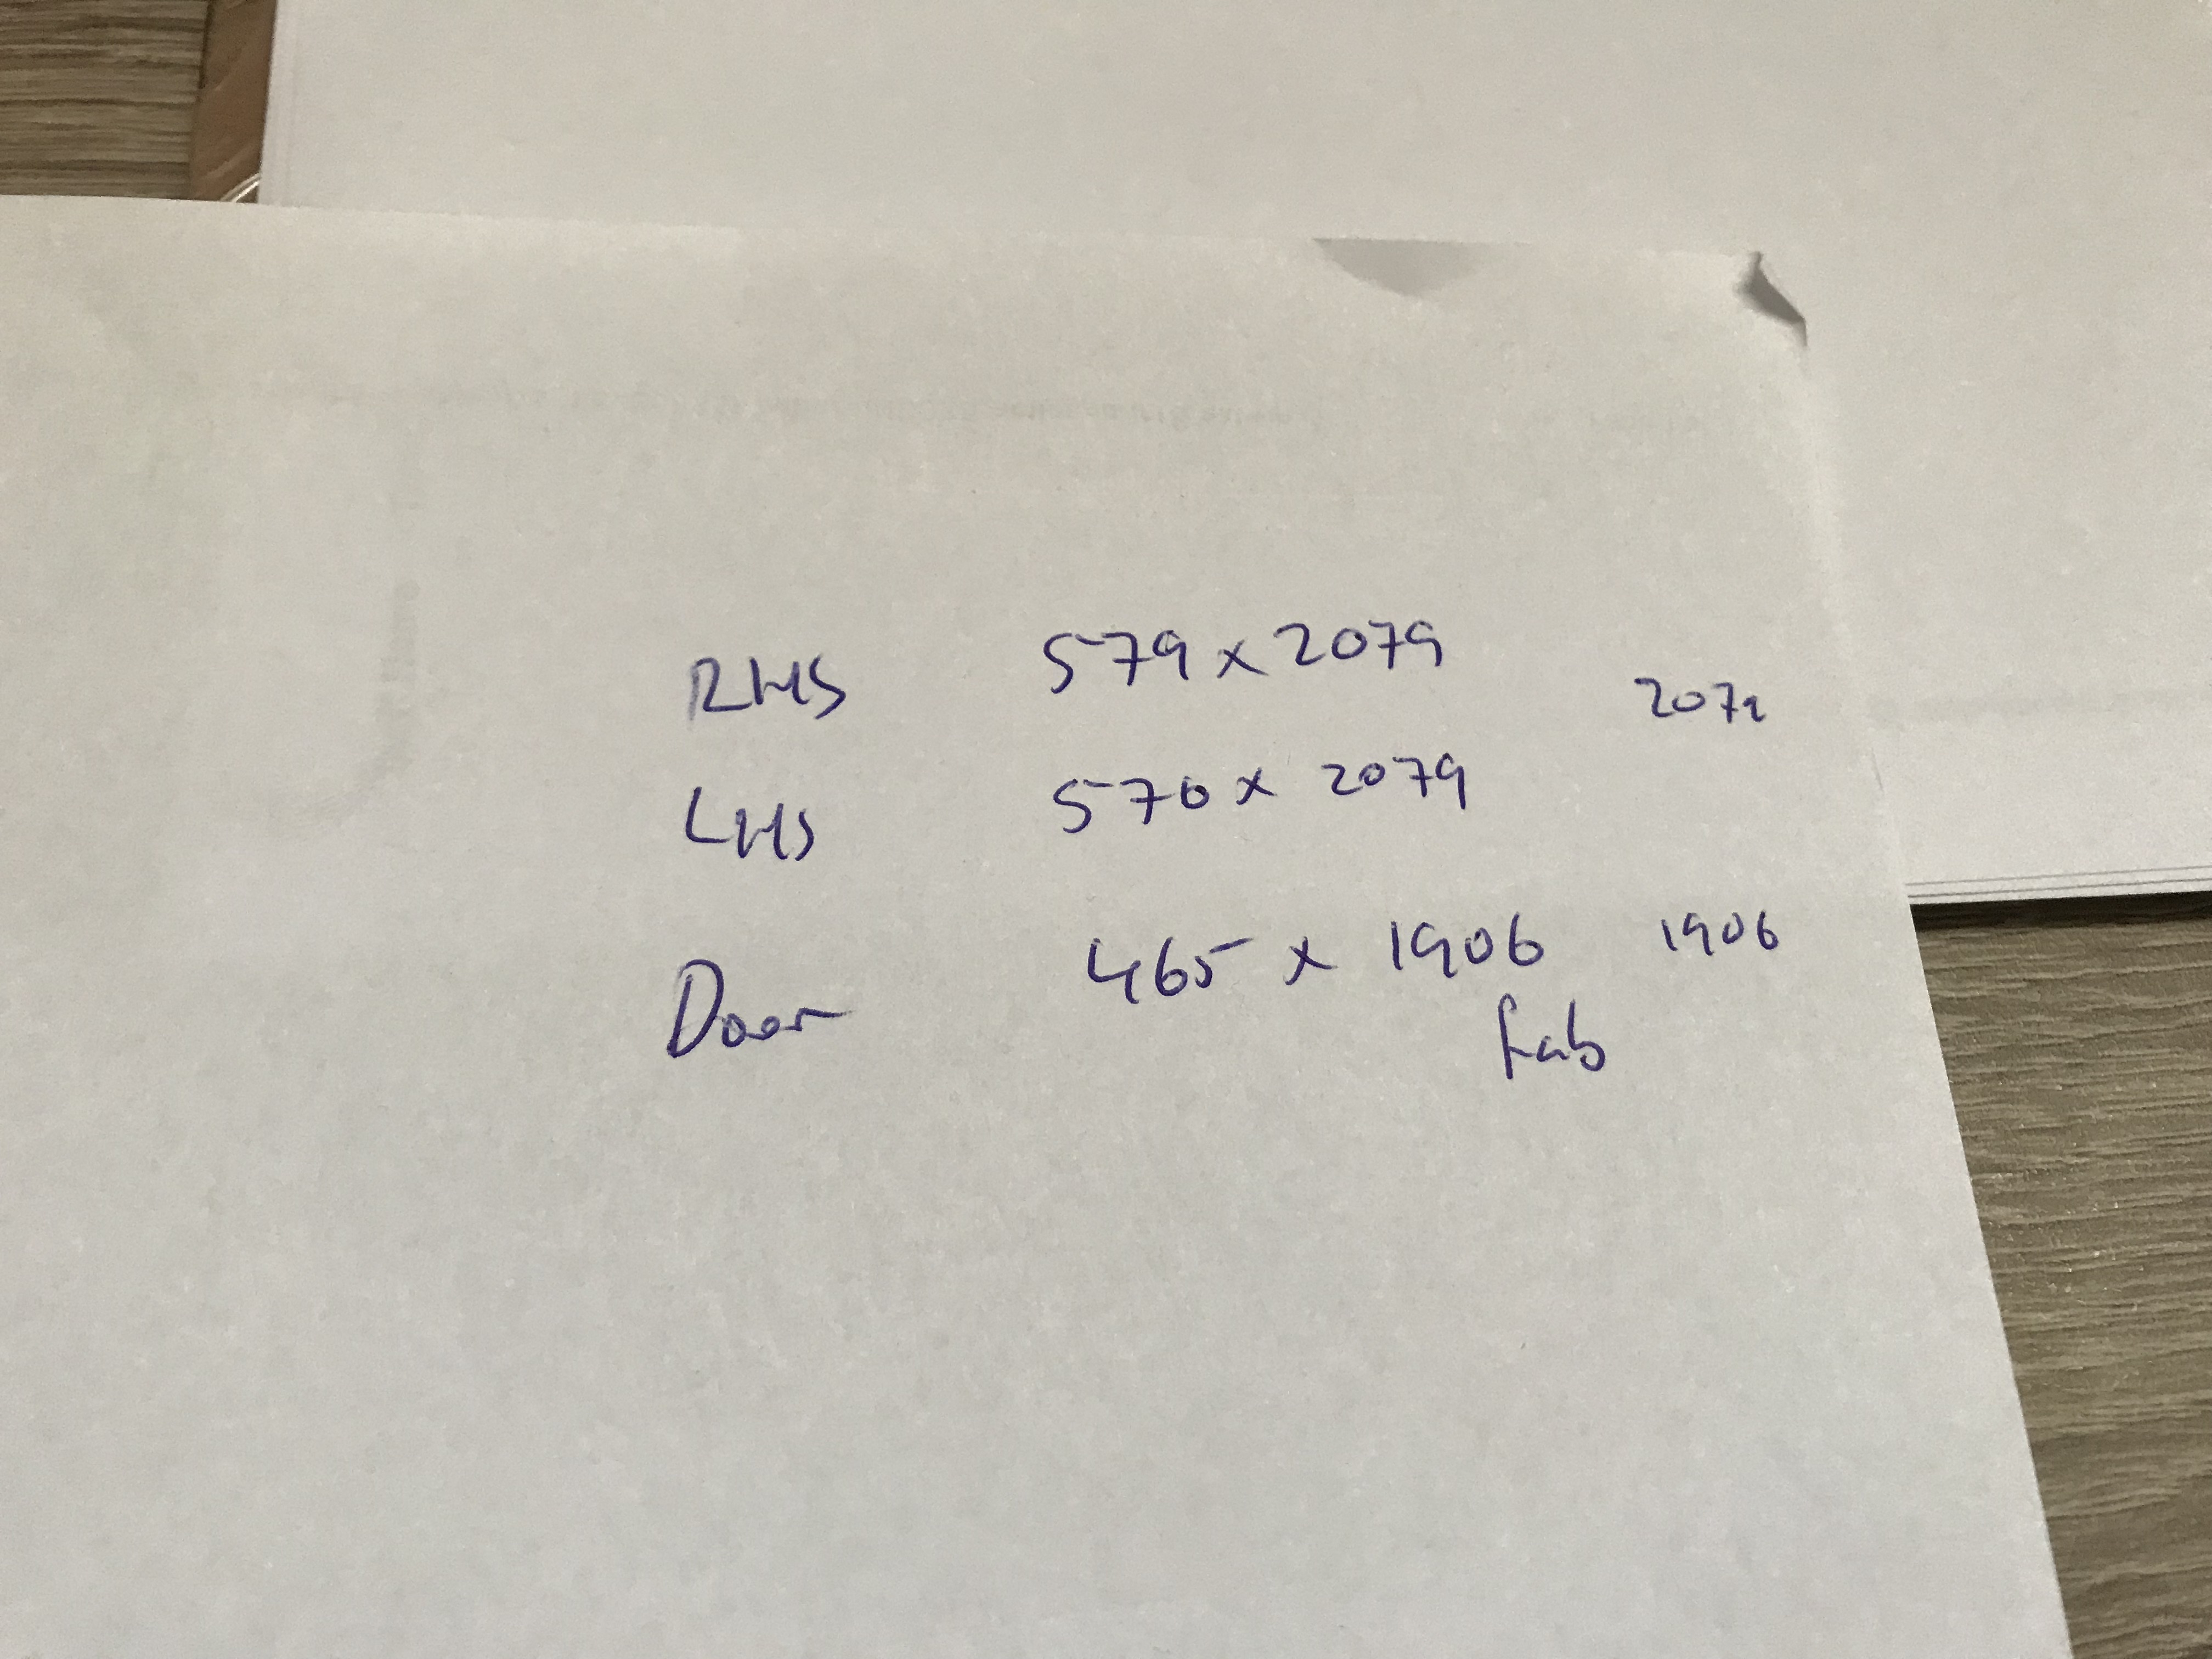 RHS 579 x 2079
2072
LHS 570 x 2079
Door 465 x 1906 1906
fab